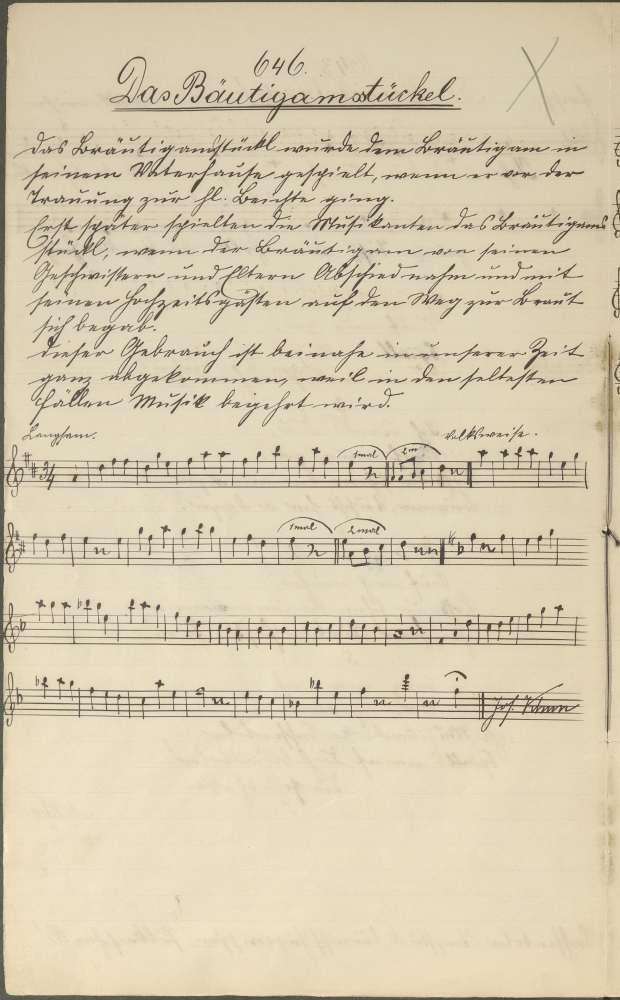 646.
Das Bäutigamstückel.
Das Bräutigamstückl wurde dem Bräutigam in
seinem Vaterhause gespielt, wenn er vor der
Trauung zur hl. Beichte ging.
Erst später spielten die Musikanten das Bräutigams
stückl, wenn der Bräutigam von seinen
Geschwistern und Eltern Abschied nahm und mit
seinen Hochzeitsgästen auf den Weg zur Braut
sich begab.
Dieser Gebrauch ist beinahe in unserer Zeit
ganz abgekommen, weil in den seltesten
Fällen Musik begehrt wird.
Langsam. Volksweise.
3/4 1mal 2m
1mal 2mal
Jos.